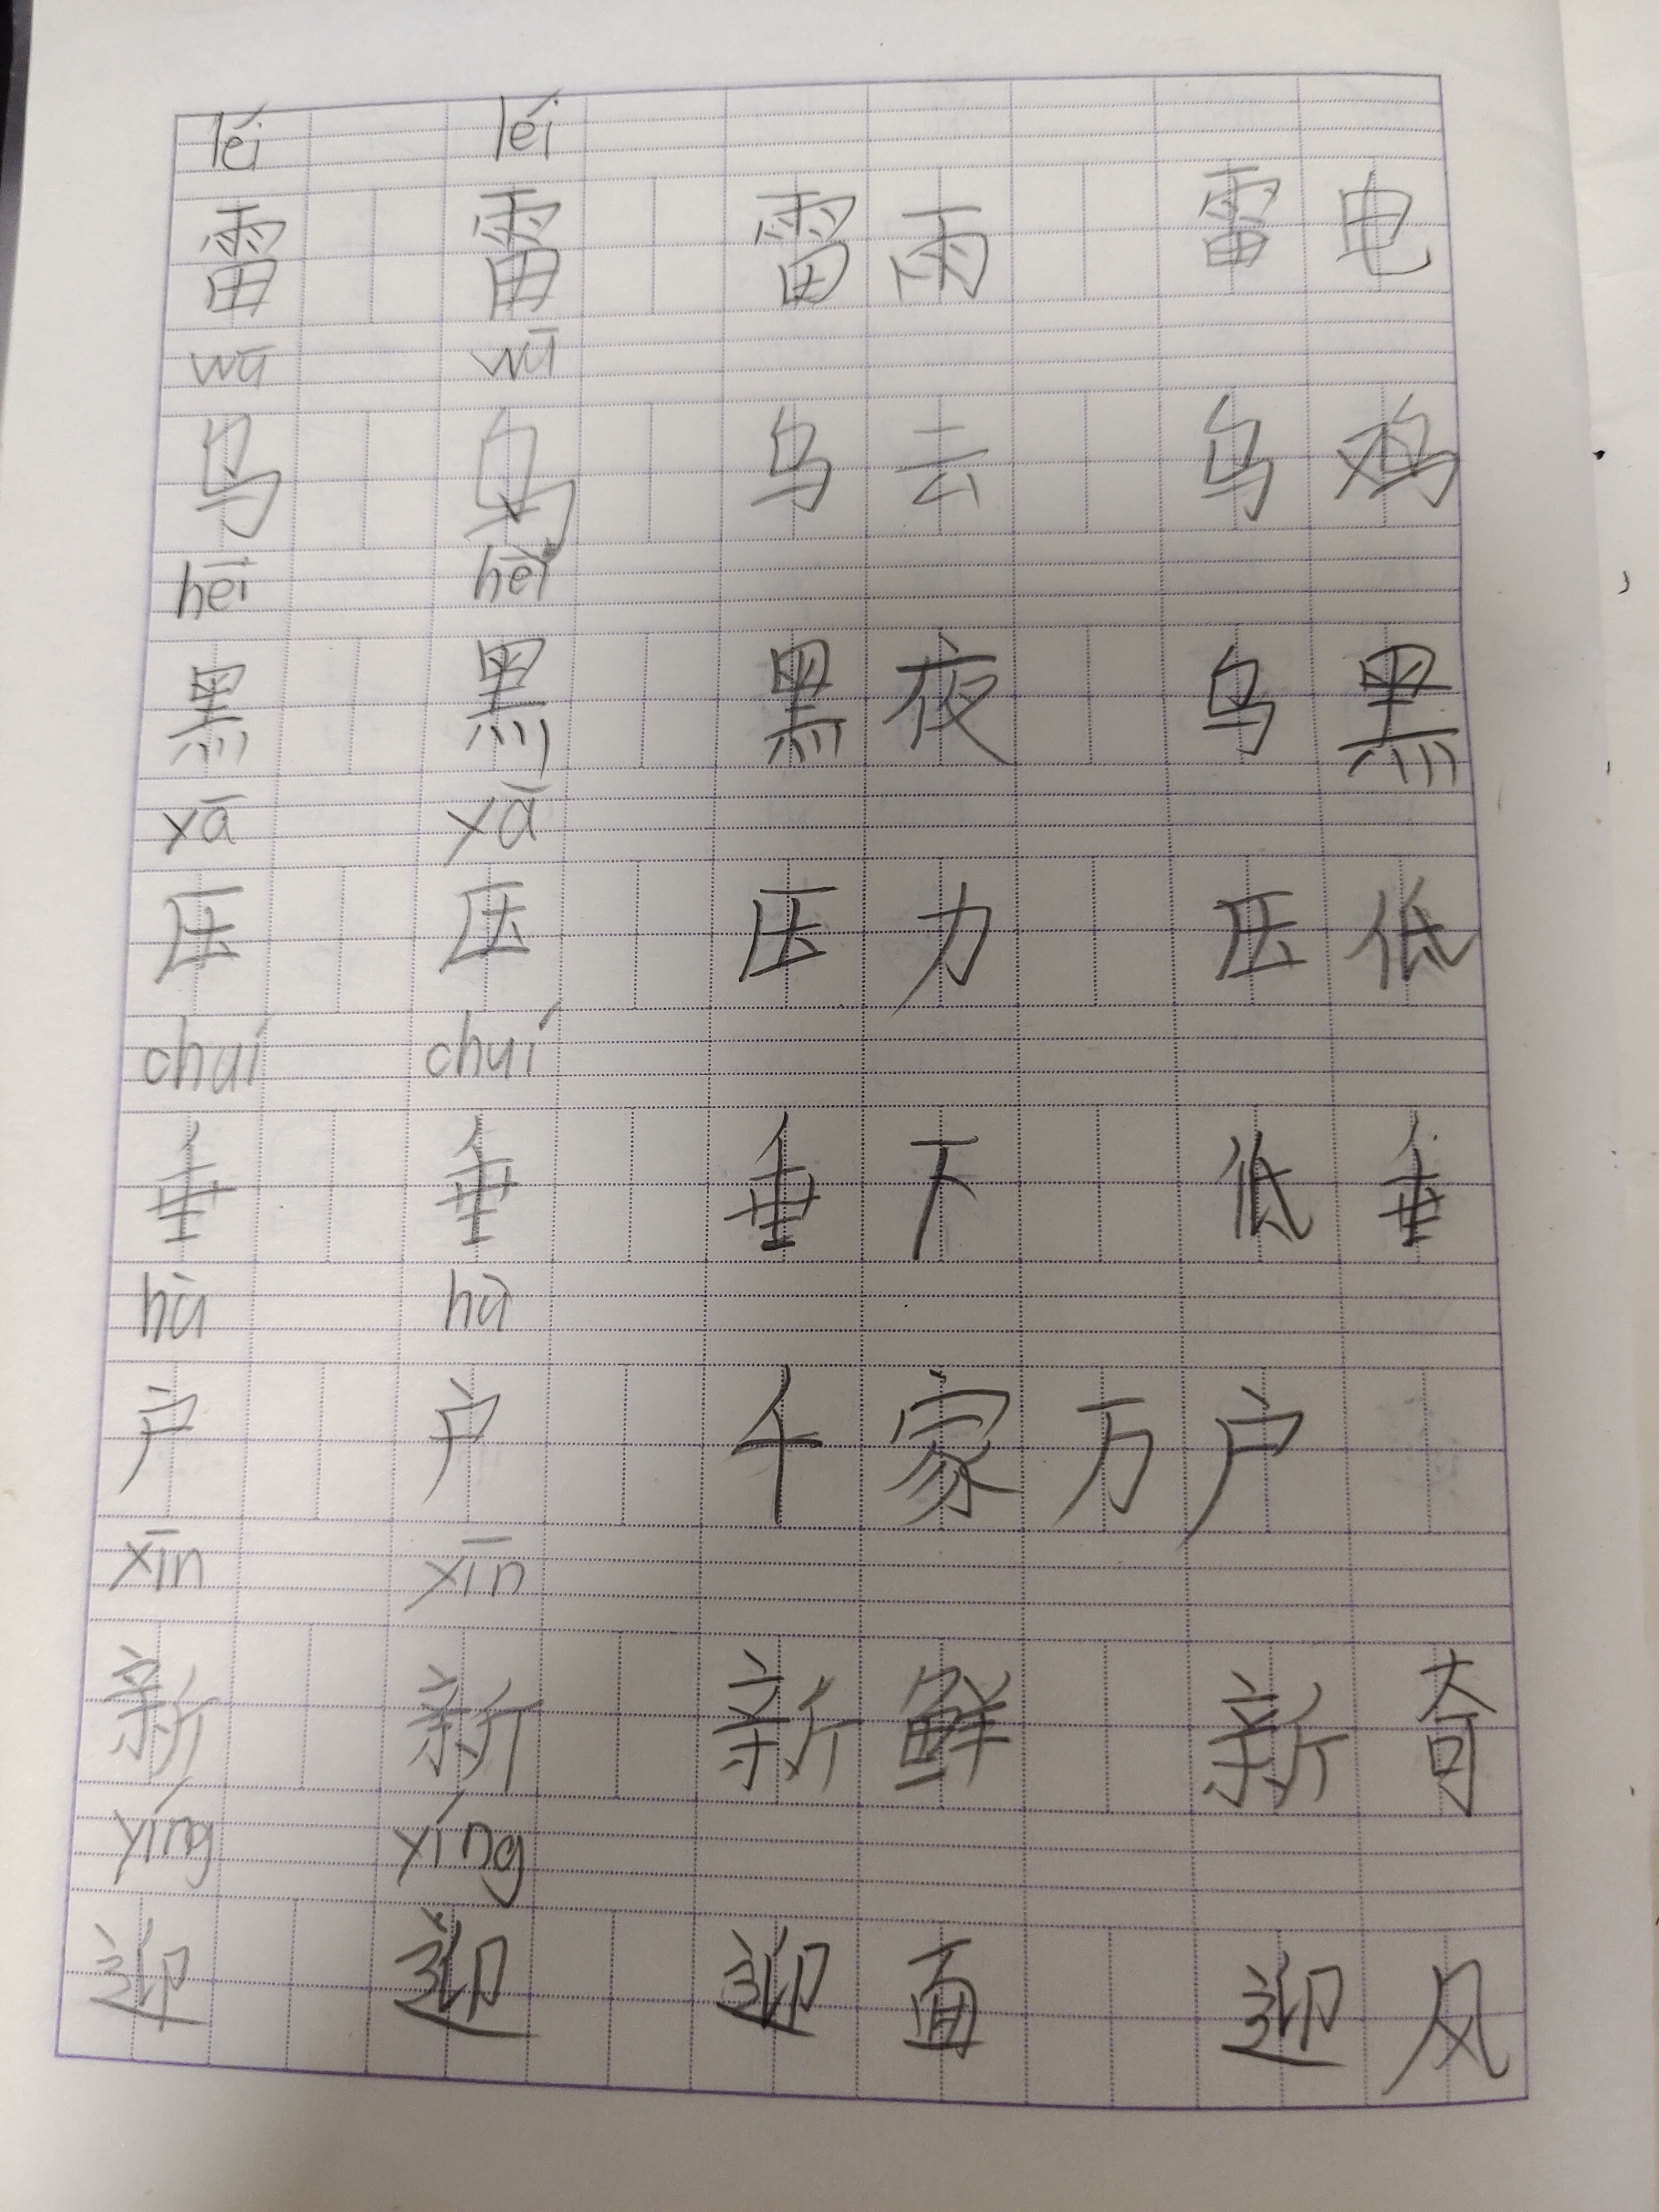 léi léi
雷 雷 雷雨 雷电
wū wū
乌 乌 乌云 乌鸡
hēi hēi
黑 黑 黑夜 乌黑
yā yā
压 压 压力 压低
chuí chuí
垂 垂 垂下 低垂
hù hù
户 户 千家万户
xīn xīn
新 新 新鲜 新奇
yíng yíng
迎 迎 迎面 迎风